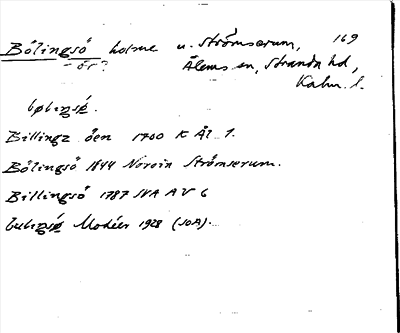 Bölingsö holme u. Strömserum, 169
- ör? Ålems sn, Stranda hd,
Kalm. l.
bøliŋsǿ.
Billingz öen 1700 K Ål 1.
Bölingsö 1844 Norein Strömserum.
Billingsö 1787 SVA AV 6
buliŋsǿ Modéer 1928 (SOA).